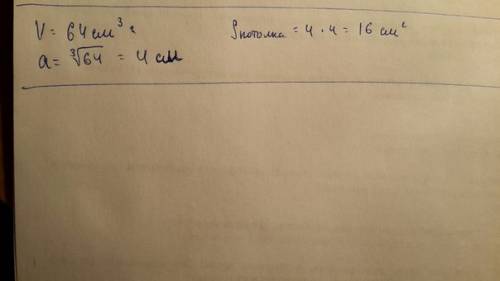 V = 64 см³
a = ∛64 = 4 см
Sпотолка = 4 · 4 = 16 см²